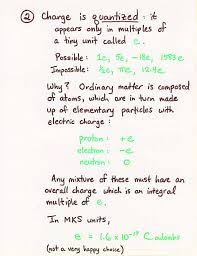 ② Charge is quantized: it
appears only in multiples of
a tiny unit called e.
Possible: 1e, 5e, -18e, 1983e
Impossible: ½e, πe, 12.4e
Why? Ordinary matter is composed
of atoms, which are in turn made
up of elementary particles with
electric charge:
proton: +e
electron: -e
neutron: 0
Any mixture of these must have an
overall charge which is an integral
multiple of e.
In MKS units,
e = 1.6 × 10⁻¹⁹ Coulombs
(not a very happy choice)